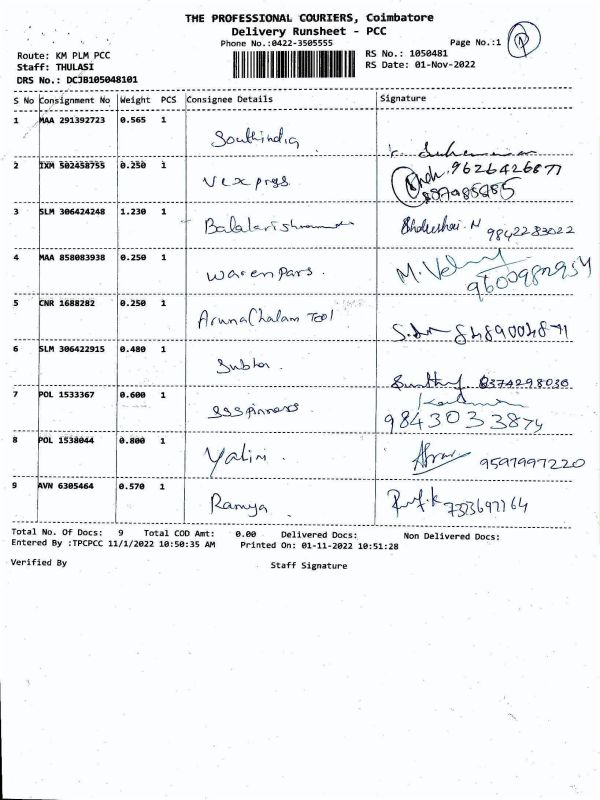 THE PROFESSIONAL COURIERS, Coimbatore
Delivery Runsheet - PCC
Phone No.:0422-3505555
Page No.:1
Route: KM PLM PCC
RS No.: 1050481
Staff: THULASI
RS Date: 01-Nov-2022
DRS No.: DCJB105048101
S No Consignment No Weight PCS Consignee Details Signature
1 MAA 291392723 0.565 1
Southindia
2 IXM 502458755 0.250 1
9626426877
Vexprgs
3 SLM 306424248 1.230 1
Balakrishnan
9842283022
4 MAA 858083938 0.250 1
M. Velu
warenpars. 9600982954
5 CNR 1688282 0.250 1
Arunachalam Tool
8489004871
6 SLM 306422915 0.480 1
Subha
8374298030
7 POL 1533367 0.600 1
ssspinners 9843033874
8 POL 1538044 0.800 1
Yalini. 9597997220
9 AVN 6305464 0.570 1
Ramya
Total No. Of Docs: 9 Total COD Amt: 0.00 Delivered Docs: Non Delivered Docs:
Entered By :TPCPCC 11/1/2022 10:50:35 AM Printed On: 01-11-2022 10:51:28
Verified By
Staff Signature